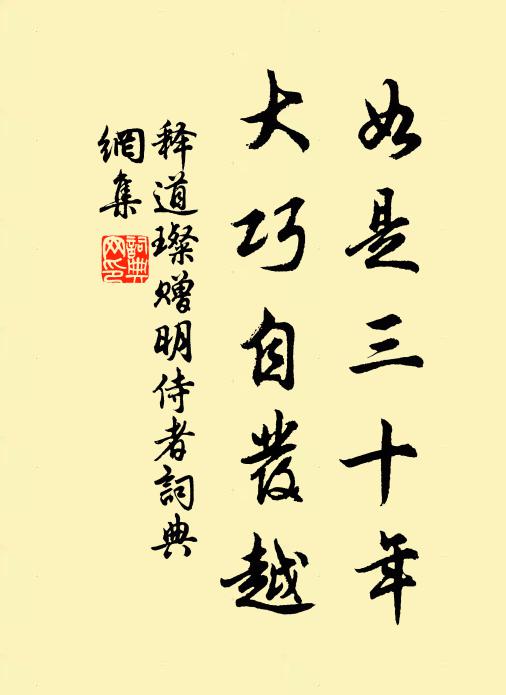 如是三十年
大巧自發越
释道璨赠明侍者詞典
網集
詞典
网印